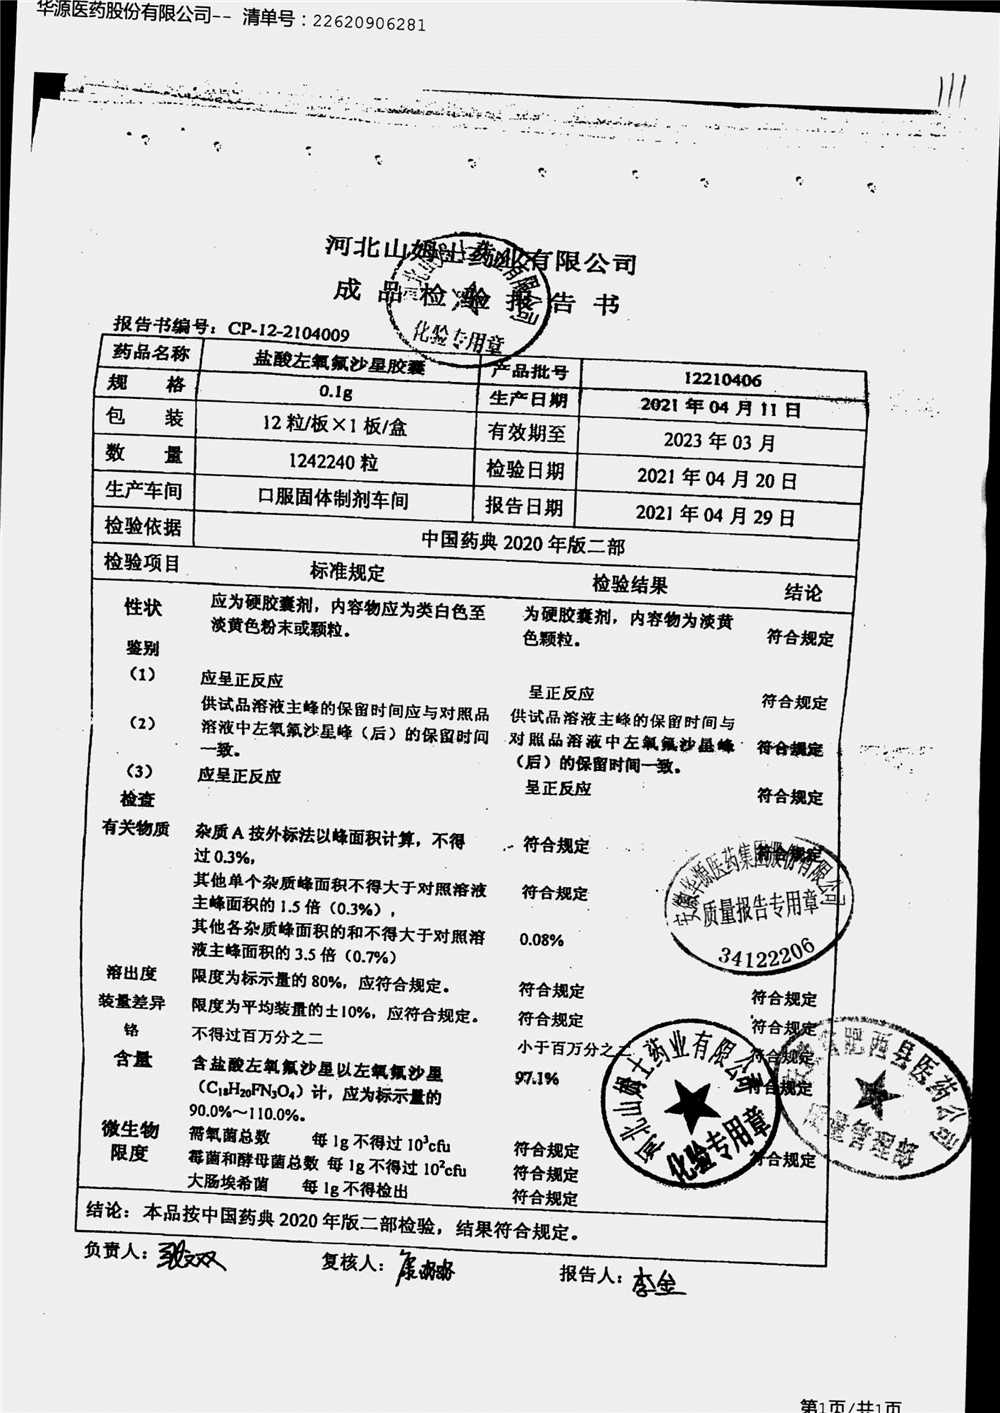 华源医药股份有限公司-- 清单号：22620906281
河北山姆士药业有限公司
成品检验报告书
化验专用章
报告书编号：CP-12-2104009
药品名称 盐酸左氧氟沙星胶囊 产品批号 12210406
规 格 0.1g 生产日期 2021 年 04 月 11 日
包 装 12 粒/板×1 板/盒 有效期至 2023 年 03 月
数 量 1242240 粒 检验日期 2021 年 04 月 20 日
生产车间 口服固体制剂车间 报告日期 2021 年 04 月 29 日
检验依据 中国药典 2020 年版二部
检验项目 标准规定 检验结果 结论
性状 应为硬胶囊剂，内容物应为类白色至 为硬胶囊剂，内容物为淡黄
淡黄色粉末或颗粒。 色颗粒。 符合规定
鉴别
（1） 应呈正反应 呈正反应 符合规定
供试品溶液主峰的保留时间应与对照品 供试品溶液主峰的保留时间与
（2） 溶液中左氧氟沙星峰（后）的保留时间 对照品溶液中左氧氟沙星峰 符合规定
一致。 （后）的保留时间一致。
（3） 应呈正反应 呈正反应 符合规定
检查
有关物质 杂质 A 按外标法以峰面积计算，不得 符合规定 符合规定
过 0.3%，
其他单个杂质峰面积不得大于对照溶液 符合规定
主峰面积的 1.5 倍（0.3%），
其他各杂质峰面积的和不得大于对照溶 0.08%
液主峰面积的 3.5 倍（0.7%）
安徽华源医药集团股份有限公司
质量报告专用章
34122206
溶出度 限度为标示量的 80%，应符合规定。 符合规定 符合规定
装量差异 限度为平均装量的±10%，应符合规定。 符合规定 符合规定
铬 不得过百万分之二 小于百万分之二 符合规定
含量 含盐酸左氧氟沙星以左氧氟沙星 97.1% 符合规定
（C₁₈H₂₀FN₃O₄）计，应为标示量的
90.0%～110.0%。
微生物 需氧菌总数 每 1g 不得过 10³cfu 符合规定
限度 霉菌和酵母菌总数 每 1g 不得过 10²cfu 符合规定 符合规定
大肠埃希菌 每 1g 不得检出 符合规定
河北山姆士药业有限公司
化验专用章
肥西县医药公司
质量管理部
结论：本品按中国药典 2020 年版二部检验，结果符合规定。
负责人： 复核人： 报告人：李金
第1页/共1页